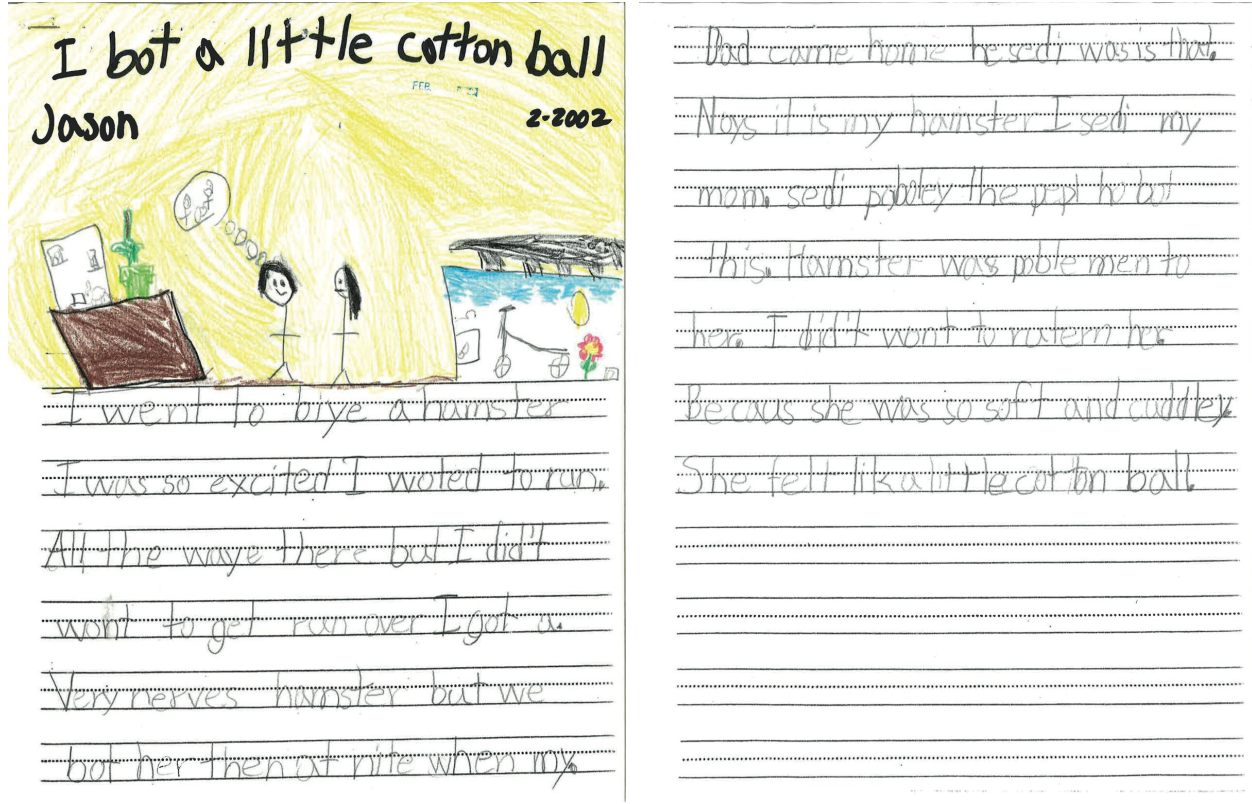 I bot a little cotton ball
Jason
2-2002
FEB
I went to biye a hamster
I was so excited I woted to run.
All the waye there but I did't
wont to get run over I got a.
Very nerves hamster but we
bot her then at nite when my.
Dad came home he sedi was is that.
Noys it is my hamster I sedi my
mom. sedi pobbley the pepl ho bot
this. Hamster was poble men to
her. I did't wont to rutern her.
Becaus she was so soft and cuddley.
She felt lik a little cotton ball.